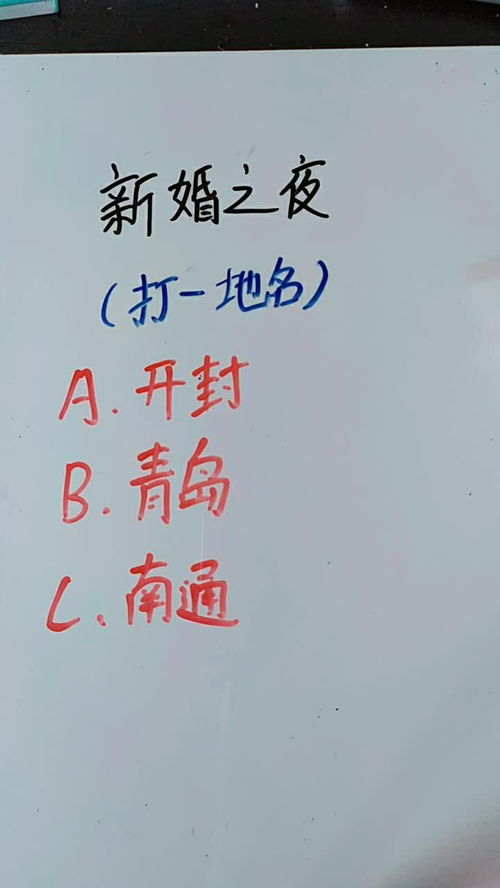 新婚之夜
(打一地名)
A.开封
B.青岛
C.南通